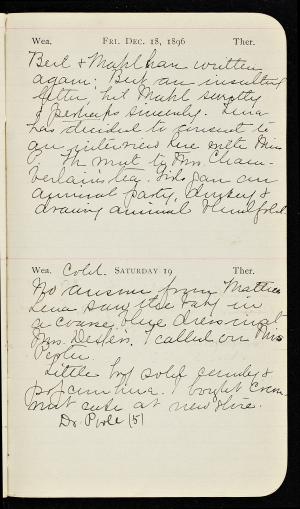 Wea. FRI. DEC. 18, 1896 Ther.
Bert & Mabl have written
again; Bert an insulting
letter, but Mabl sweetly
& perhaps sincerely. Lena
has decided to consent to
an interview here with Miss
P. We went to Mrs. Cham-
berlain's tea. Girls gave an
animal party, donkey &
drawing animal blindfold.
Wea. Cold. SATURDAY 19 Ther.
No answer from Mattie
Lena saw the baby in
a coarse blue dress in at
Mrs. . I called on Miss
Little boy sold candy &
popcorn here. I bought
nut cake at new store.
Dr. Poole (5)